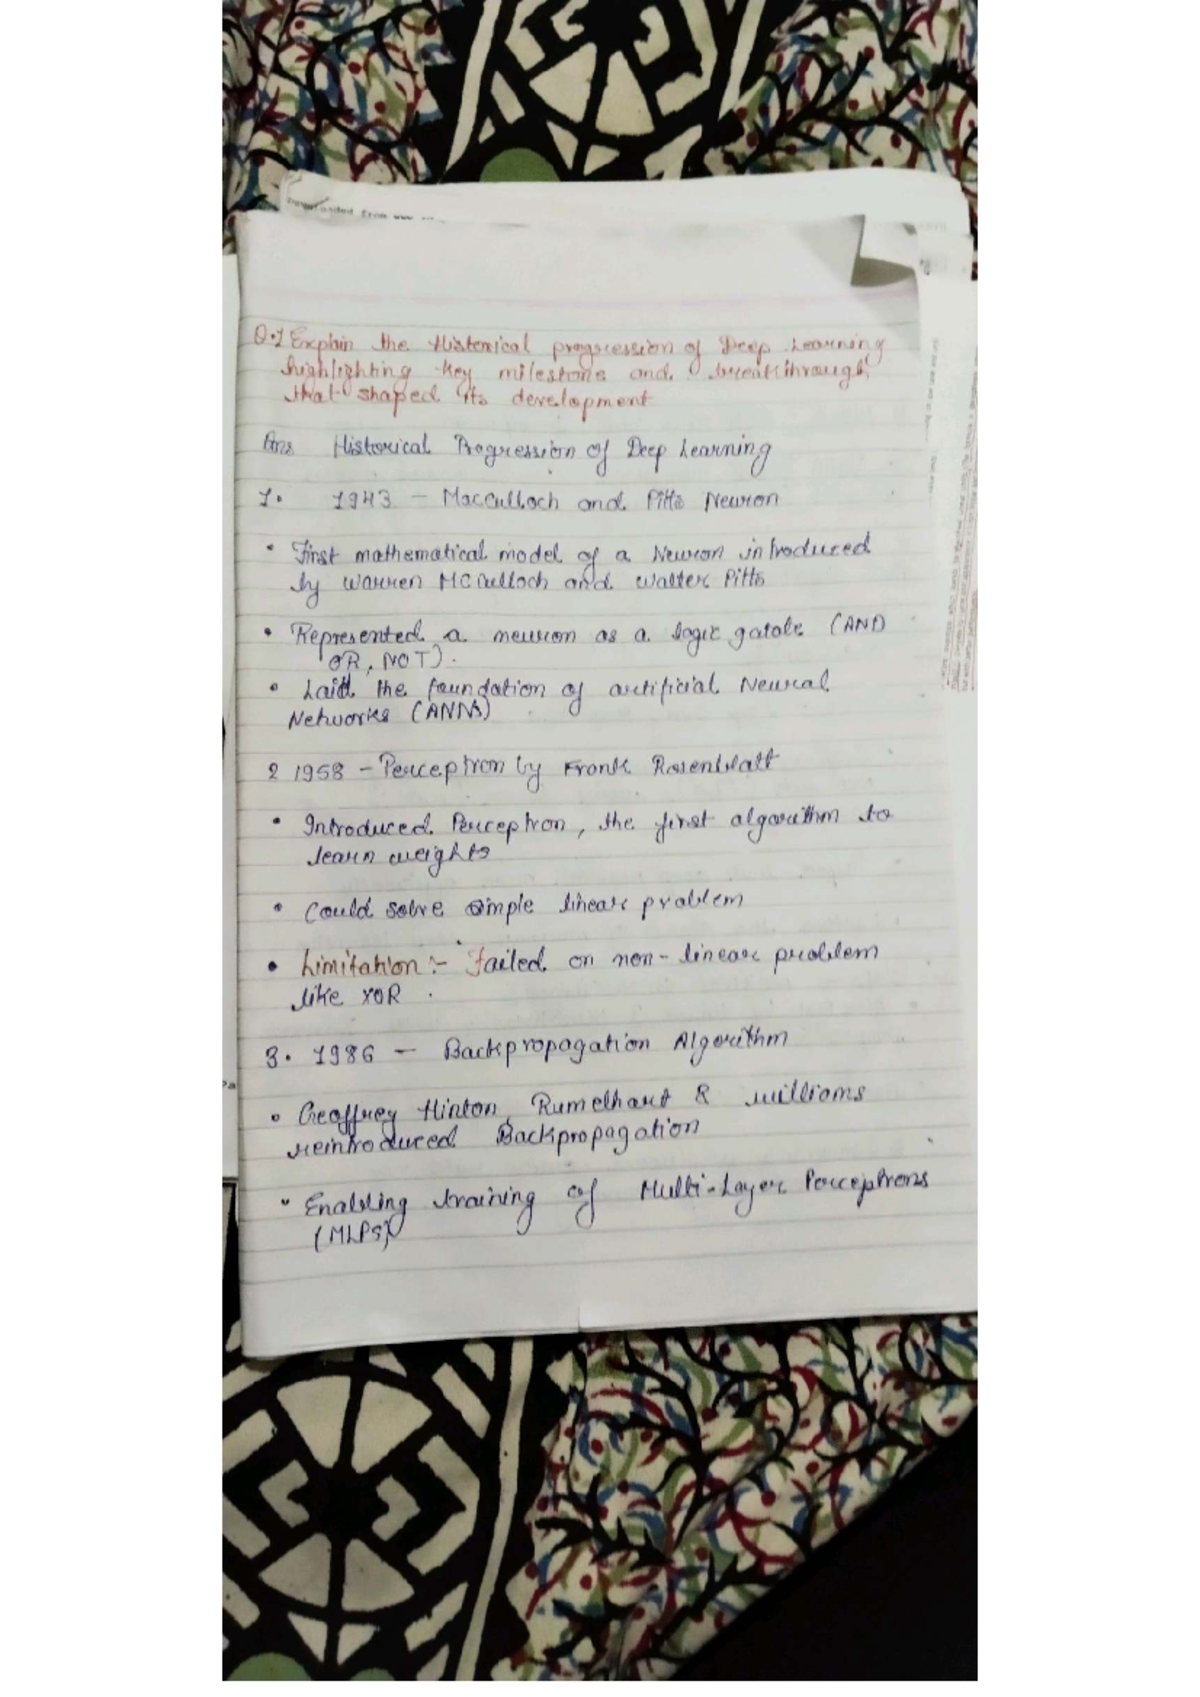 Downloaded from www
Q.1 Explain the Historical progression of Deep Learning
highlighting key milestone and breakthrough
that shaped its development
Ans Historical Progression of Deep Learning
1. 1943 – MacCulloch and Pitts Neuron
• First mathematical model of a Neuron introduced
by Warren McCulloch and Walter Pitts
• Represented a neuron as a logic gatate (AND
OR, NOT).
• Laid the foundation of artificial Neural
Networks (ANNs)
2 1958 – Perceptron by Frank Rosenblatt
• Introduced Perceptron, the first algorithm to
learn weights
• Could solve simple linear problem
• Limitation :- failed on non-linear problem
like XOR .
3. 1986 – Backpropagation Algorithm
• Geoffrey Hinton, Rumelhart & williams
reintroduced Backpropagation
• Enabling training of Multi-Layer Perceptrons
(MLPs)